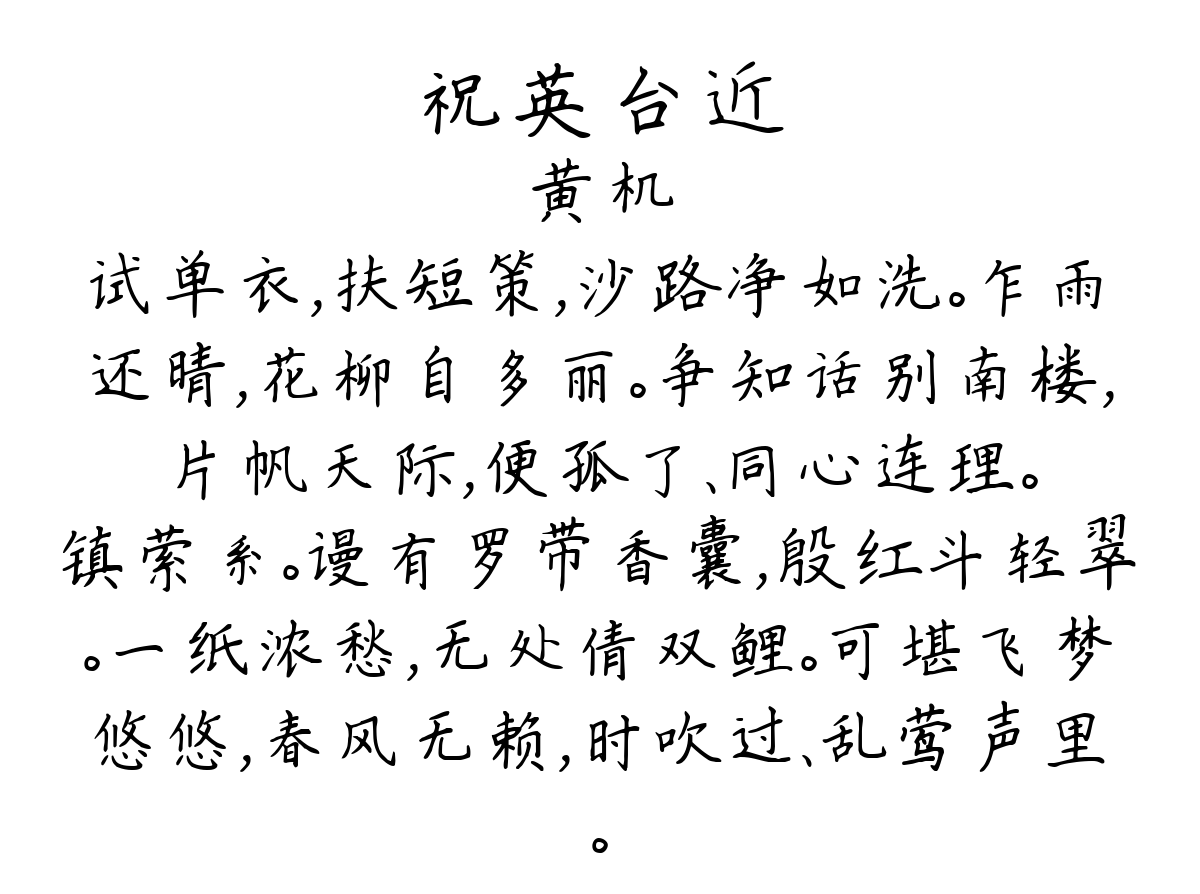 祝英台近
黄机
试单衣,扶短策,沙路净如洗。乍雨
还晴,花柳自多丽。争知话别南楼,
片帆天际,便孤了、同心连理。
镇萦系。谩有罗带香囊,殷红斗轻翠
。一纸浓愁,无处倩双鲤。可堪飞梦
悠悠,春风无赖,时吹过、乱莺声里
。